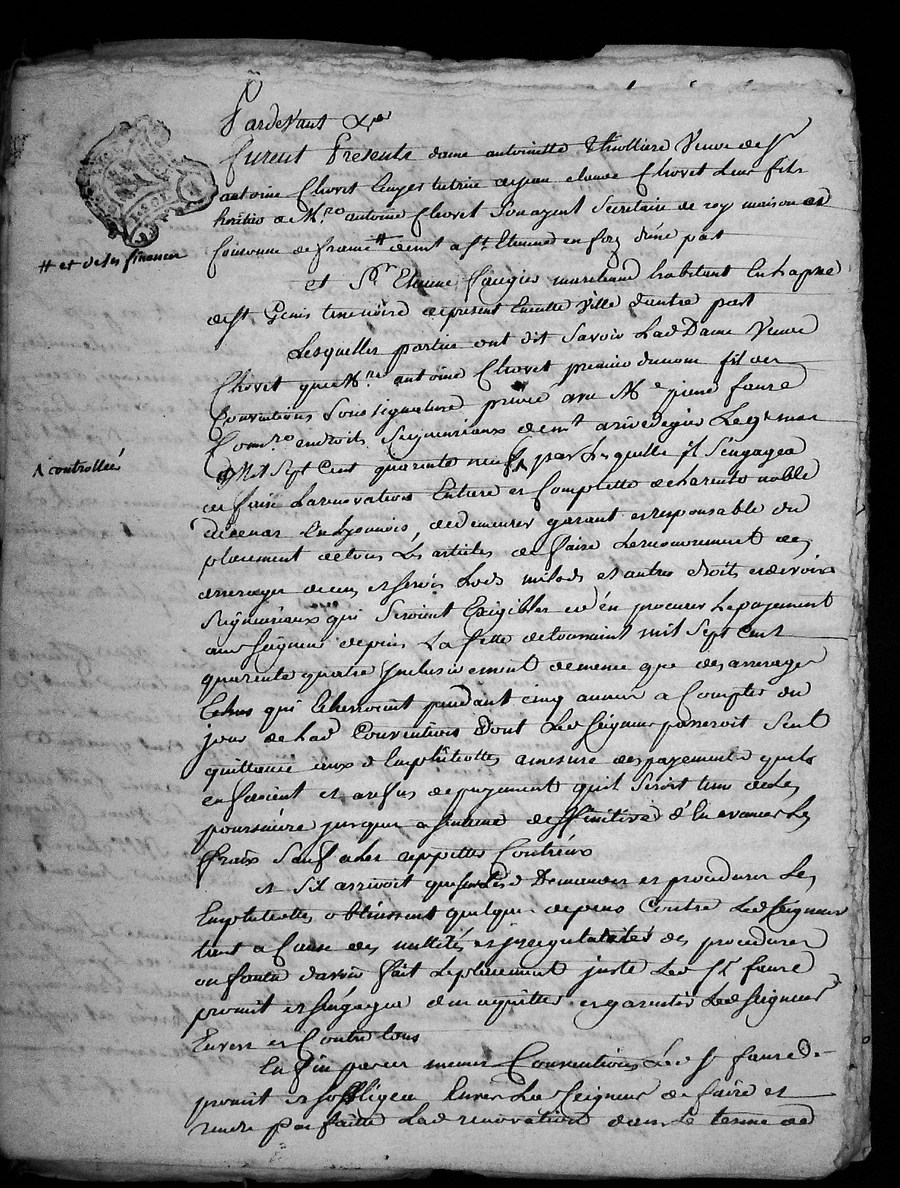 Pardevant &c
furent Presents dame antoinette Thiolliere Veuve de Sr
antoine Chovet tutrice de jean claude Chovet leur fils
heritier de Mre antoine Chovet Ecuyer Secretaire du roy maison et
Couronne de france # demt a St Etienne en forez d'une part
# et de ses finances
et Sr Etienne faugier marchand habitant En la psse
de St Genis terre noire de present En cette Ville d'autre part
Lesquelles parties ont dit Savoir Lad Dame Veuve
Chovet que Mre antoine Chovet premier du nom fit des
Conventions Sous signature privée avec Me pierre faure
Commre en droits Seigneuriaux demt a rivedegier Le 9e mars
Mil Sept Cent quarante neuf Λ par Lesquelle jl S'engagea
Λ controllée
de faire La renovation Entiere et Complette de la rente noble
de Senas En Lyonnois, de demeurer garant et responsable du
placement de tous Les articles de faire Le recouvrement des
arrerages de cens et servis Lods milods et autres droits et devoirs
Seigneuriaux qui Seroient Exigibles et d'en procurer Le payement
aud Seigneur depuis La fette de toussaint mil Sept Cent
quarente quatre Jnclusivement de meme que des arrerages
Echus qui Echerroient pendant cinq années a Compter du
jour de Lad Convention Dont Led Seigneur passeroit Seul
quittance aux d Emphiteottes a mesure des payements quils
en feroient et au refus de payement quil Seroit tenu de Les
poursuivre jusques a sentence deffinitive d'En avancer Les
fraix Sauf a Les repetter Contr'eux
et Sil arrivoit que sur Lesd Demandes et procedures Les
Emphiteottes obtinssent quelques depens Contre Led Seigneur
tant a Cause des nullités et jrregularités des procedures
ou faute d'avoir fait Le placement juste Led Sr faure
promit et s'engagea d'en acquitter et garentir Led Seigneur
Envers et Contre tous
Enfin par ces memes Conventions Led Sr faure
promit et s'obligea Envers Led Seigneur de faire et
rendre parfaitte Lad renovation dans Le terme de